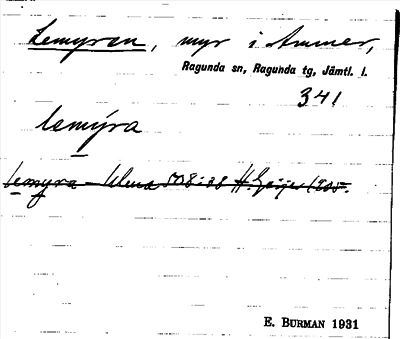 Lemyran, myr i Ammer,
Ragunda sn, Ragunda tg, Jämtl. l.
341
lemýra
Lemyra – H. Geijer
E. BURMAN 1931